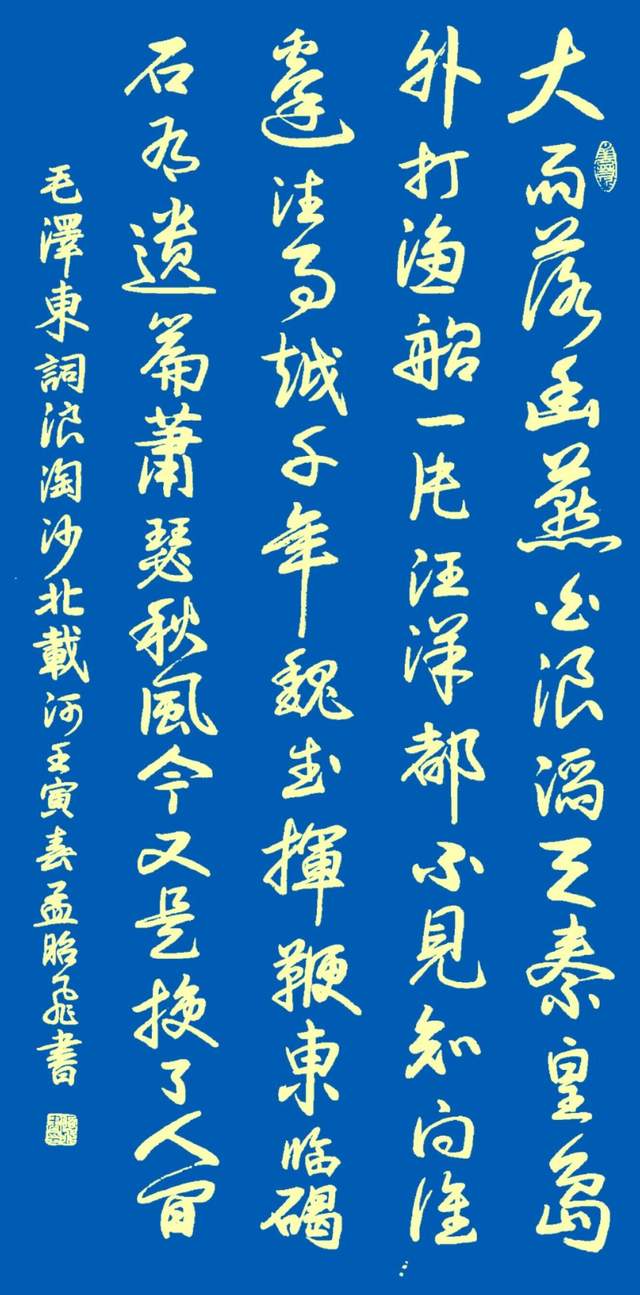 大雨落幽燕白浪滔天秦皇島
外打漁船一片汪洋都不見知向誰
邊往事越千年魏武揮鞭東临碣
石有遺篇蕭瑟秋風今又是換了人間
毛澤東詞浪淘沙北載河壬寅春孟昭飛書